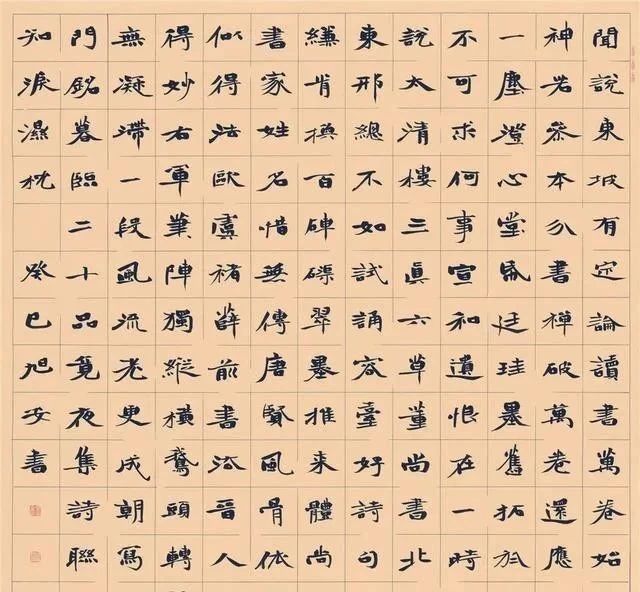 聞說東坡有定論讀書萬卷始
神若參本分書禪破萬卷還應
一塵澄心堂帋廷珪墨舊拓於
不可求何事宣和遺恨在一時
說太清樓三真六草董尚書北
東邢總不如試誦容臺好詩句
縑肯百硨磲翠墨推來體尚
書家姓名惜無傳唐賢風骨依
似得法歐虞褚薛前書洽晉人
得妙右軍筆陣獨縱橫鵝頭轉
無凝滯一段風流老更成朝寫
門銘暮臨二十品覓夜集詩聯
知淚濕枕 癸巳旭書